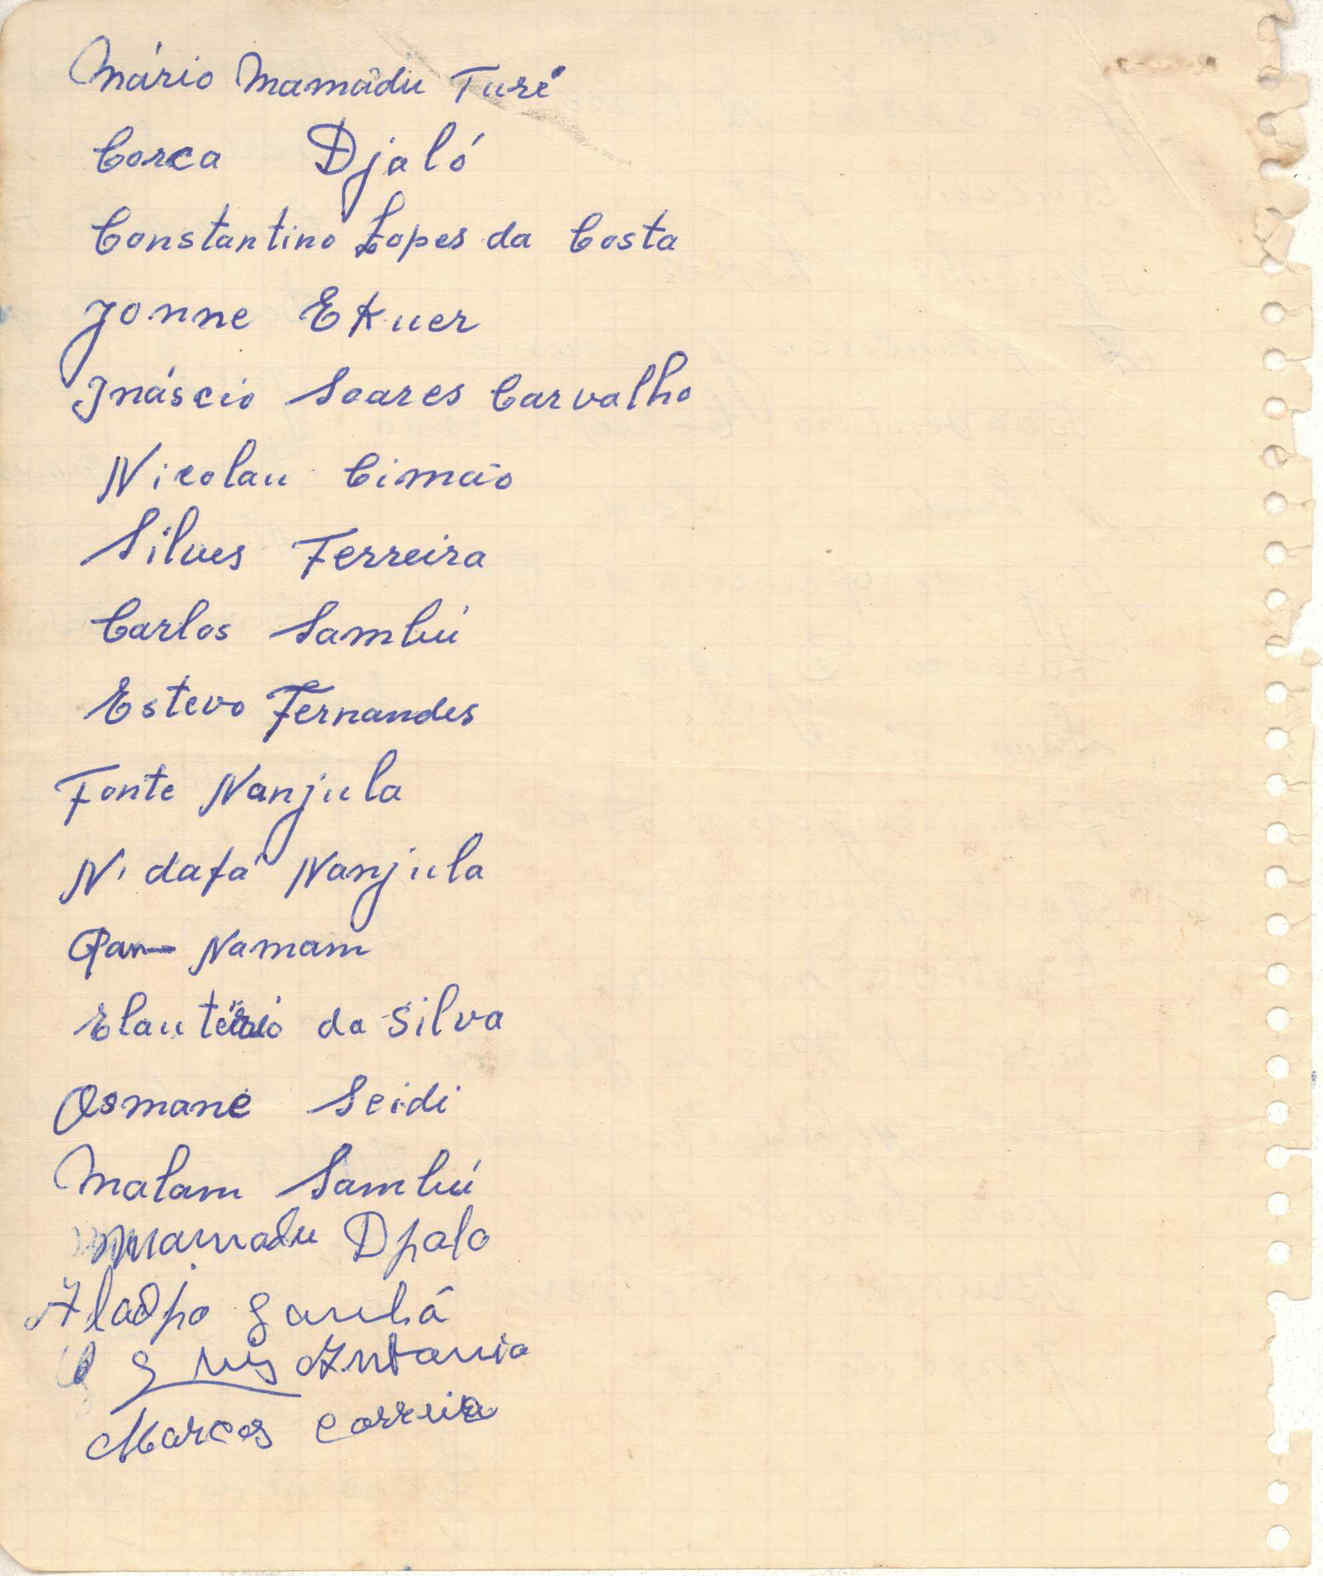 Mário Mamadu Turé
Corca Djaló
Constantino Lopes da Costa
Jonne Ekuer
Ináscio Soares Carvalho
Nicolau Cimão
Silves Ferreira
Carlos Sambú
Estevo Fernandes
Fonte Nanjula
N'dafá Nanjula
Namam
Elautério da Silva
Osmane Seidi
Malam Sambú
Mamadu Djalo
Aladjo
Antonio
Marcos Correia